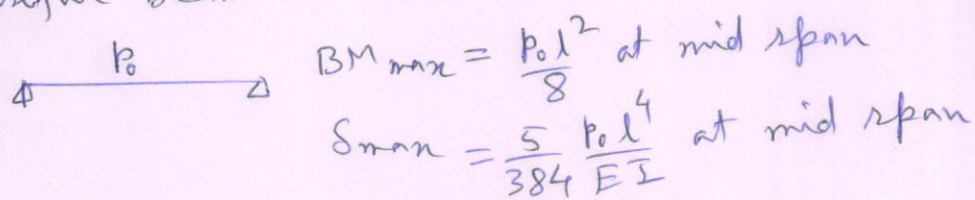 P₀
BM max = P₀l²/8 at mid span
δmax = 5/384 P₀l⁴/EI at mid span